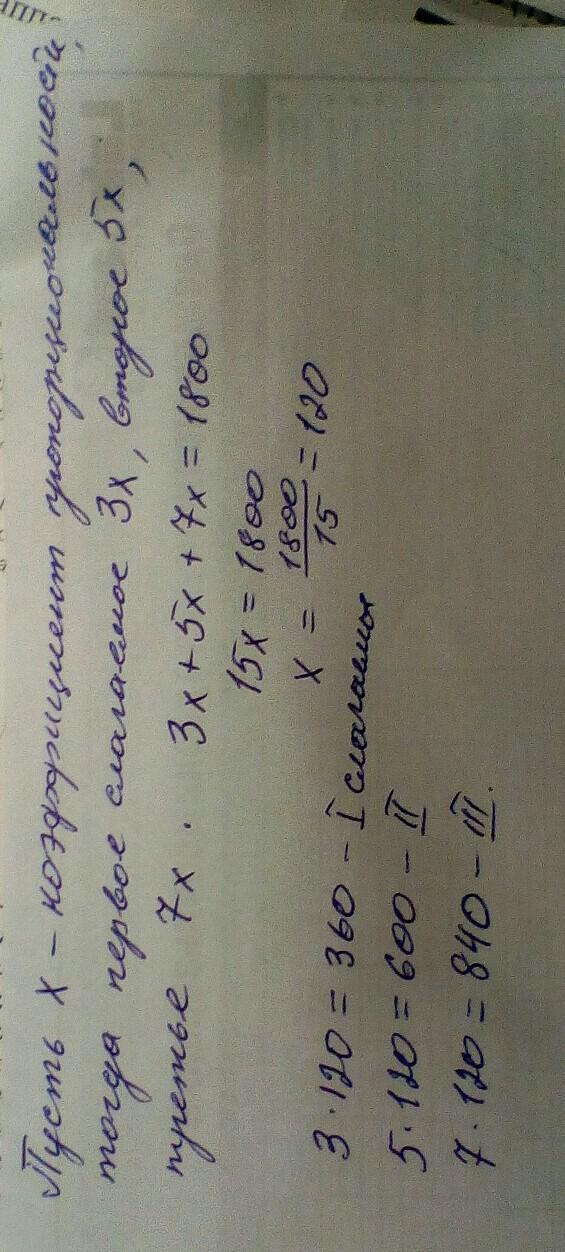 Пусть x – коэффициент пропорциональности,
тогда первое слагаемое 3x, второе 5x,
третье 7x. 3x + 5x + 7x = 1800
15x = 1800
x = 1800/15 = 120
3·120 = 360 – I слагаемое
5·120 = 600 – II
7·120 = 840 – III.